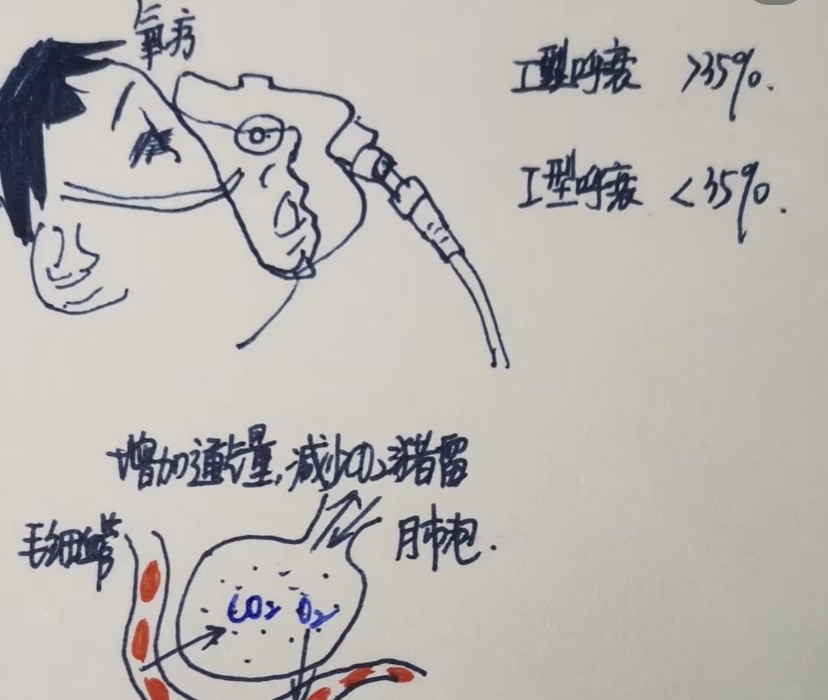 氧疗
I型呼衰 >35%.
I型呼衰 <35%.
增加通气量,减少CO₂潴留
毛细血管
肺泡.
CO₂ O₂